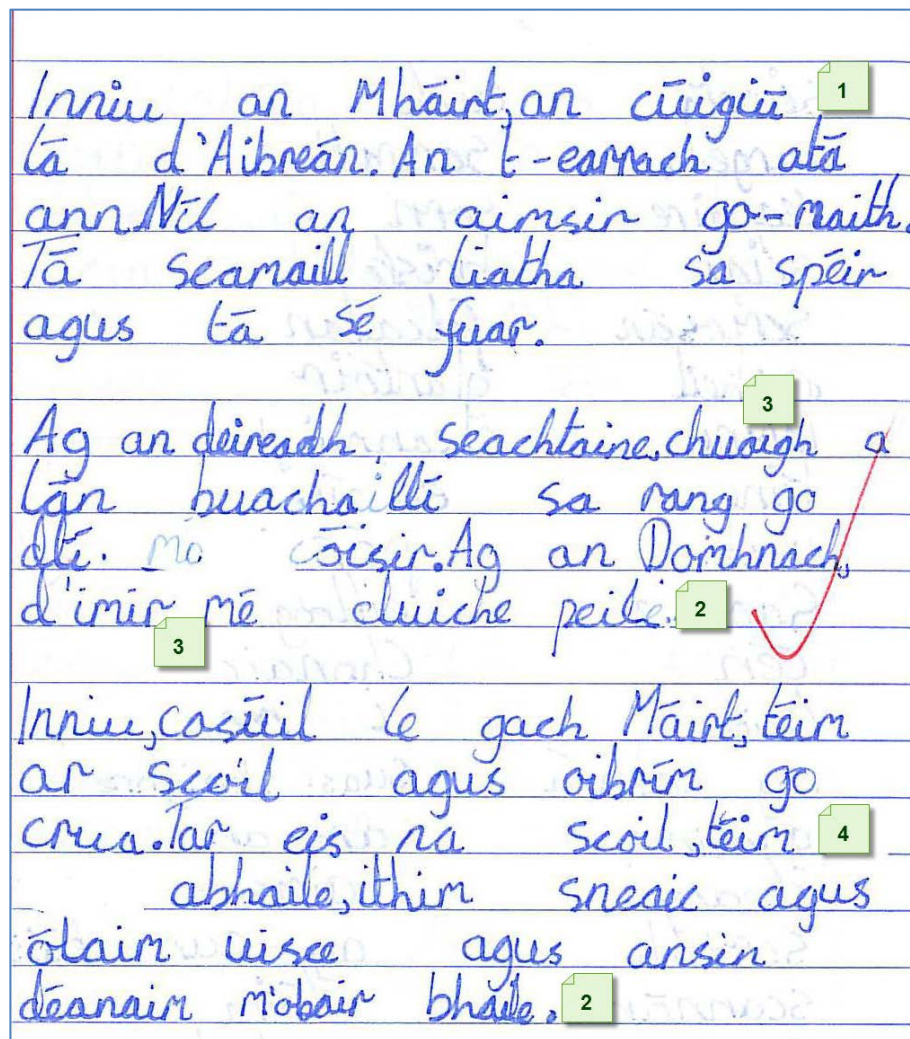 Inniu an Mháirt, an cúigiú 1
lá d'Aibreán. An t-earrach atá
ann. Níl an aimsir go-maith.
Tá scamaill liatha sa spéir
agus tá sé fuar.
3
Ag an deireadh seachtaine, chuaigh a
lán buachaillí sa rang go
dtí mo cóisir. Ag an Domhnach,
d'imir mé cluiche peile. 2
3
Inniu, cosúil le gach Máirt, téim
ar scoil agus oibrím go
crua. Tar eis na scoil, téim 4
abhaile, ithim sneaic agus
ólaim uisce agus ansin
déanaim m'obair bhaile. 2